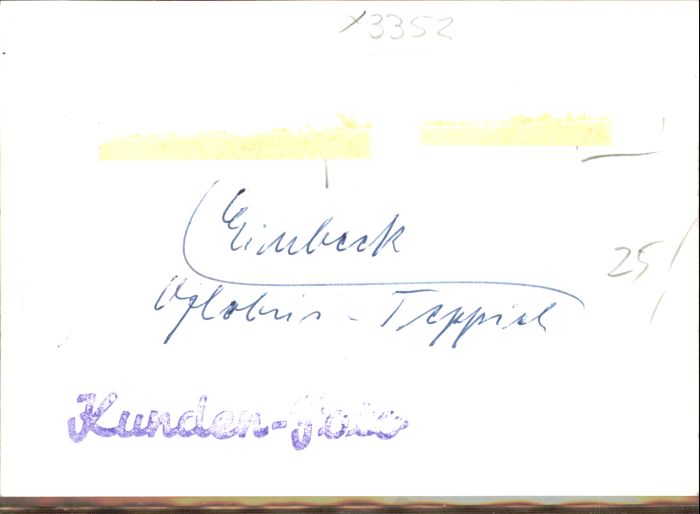 X3352
Einbeck
25/
Teppich
Kunden-Foto